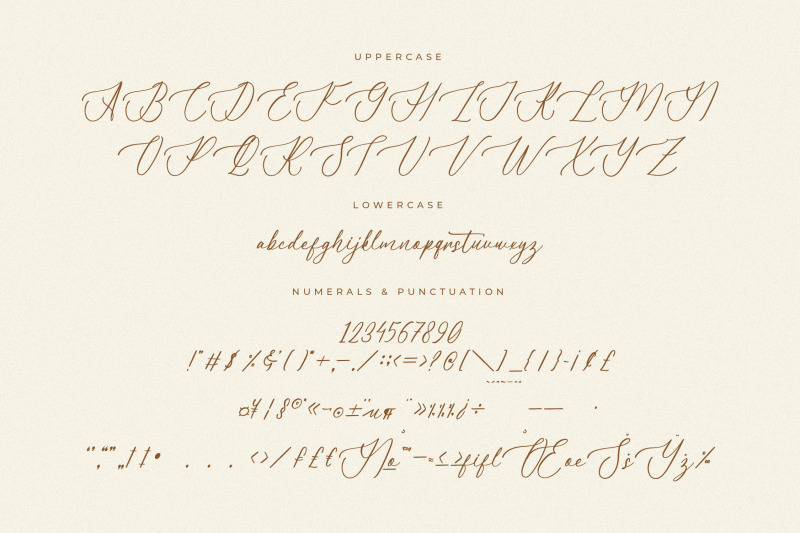 UPPERCASE
A B C D E F G H I J K L M N
O P Q R S T U V W X Y Z
LOWERCASE
abcdefghijklmnopqrstuvwxyz
NUMERALS & PUNCTUATION
1234567890
!"#$%&'()*+,-./:;<=>?@[\]_{|}~¡¢£
¤¥¦§©«¬®±¨µ¶ ¨»¼½¾¿÷ — — ·
‘’‚“”„†‡• . . . ‹›/₣£€№º™−≈≤≥fifl ŒœŠšŸž‰